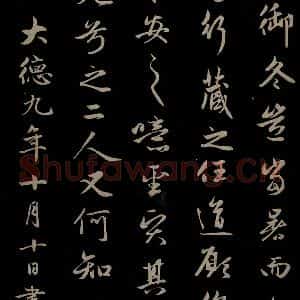 御冬豈當暑而
行藏之任道顧
安之噫其
之二人又何知
大德九年十月十日書
Shufawang.Cn